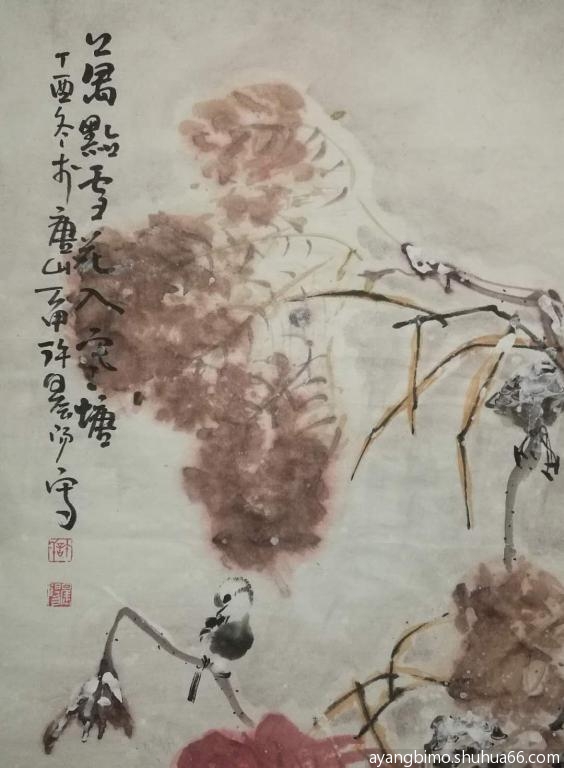 萬點雪花入寒塘
丁酉冬於唐山許晨陽寫
ayangbimo.shuhua66.com